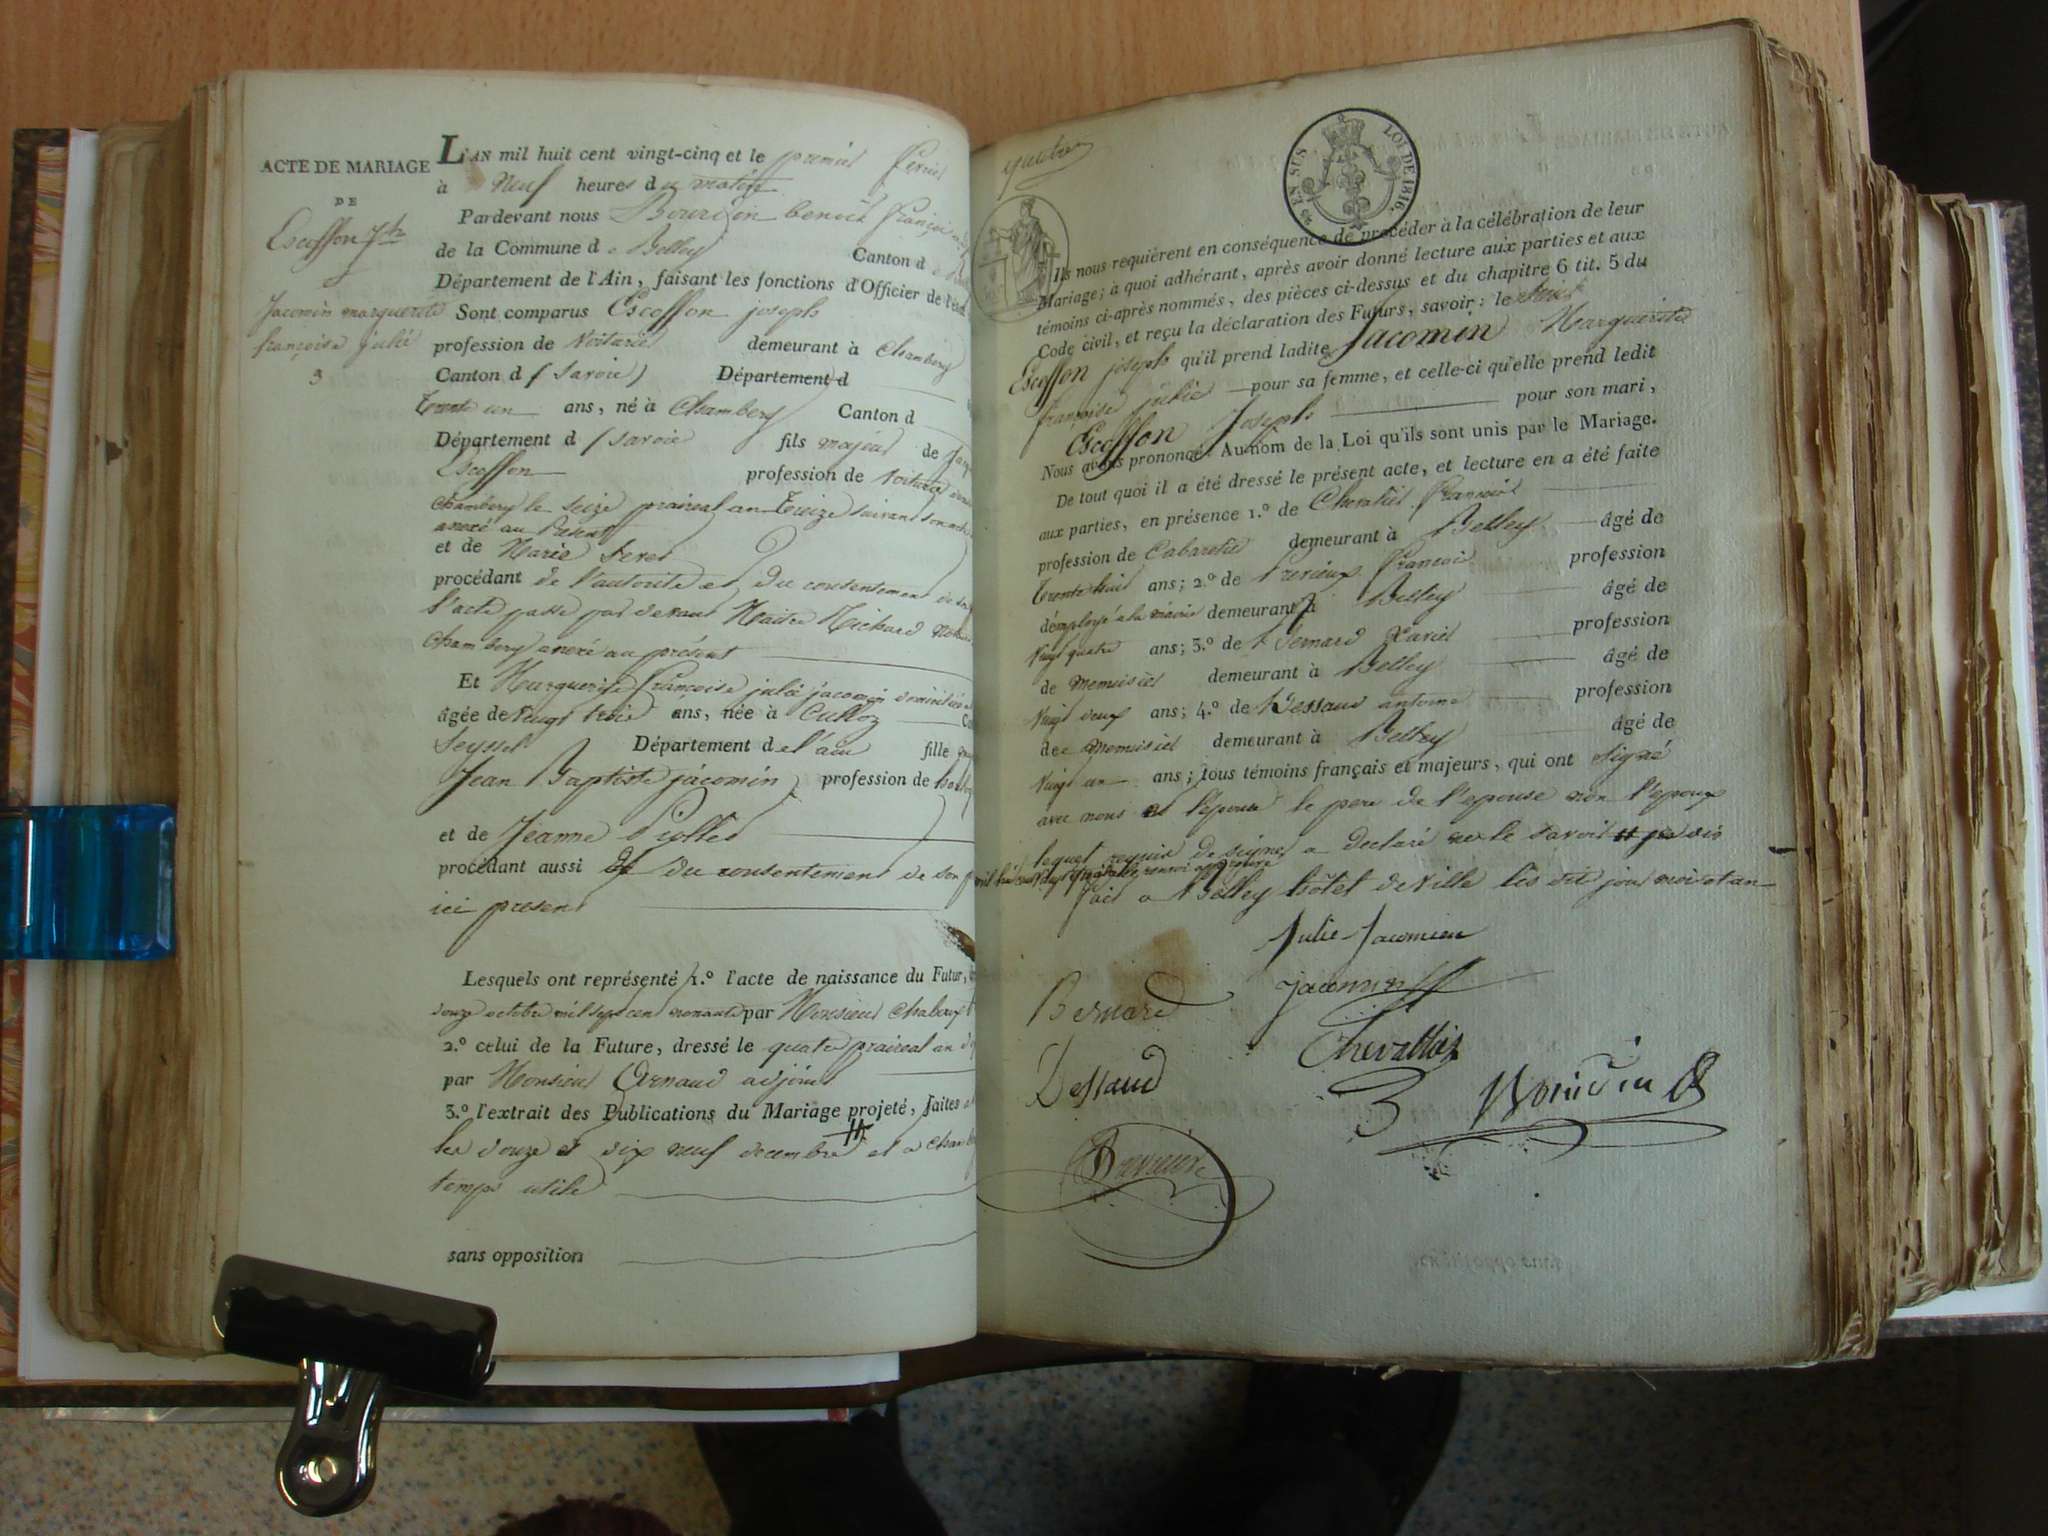 ACTE DE MARIAGE
DE
Escoffon Jph
&
Jacomin marguerite
françoise julie
3
L'AN mil huit cent vingt-cinq et le premier fevrier
à Neuf heures du matin
Pardevant nous Bourdin benoit françois
de la Commune de Belley Canton d
Département de l'Ain, faisant les fonctions d'Officier de l'état
Sont comparus Escoffon joseph
profession de Voiturier demeurant à Chambery
Canton d (Savoie) Département d
trente un ans, né à Chambery Canton d
Département d (savoie fils majeur de
Escoffon profession de voiturier
Chambery le seize praireal an treize suivant son acte
anexé au présent
et de Marie
procédant de l'autorité et du consentement de
l'acte passé par devant Maitre Richard
Chambery anexé au présent
Et Marguerite françoise julie jacomin
âgée de vingt trois ans, née à Culloz
Seyssel Département de l'ain fille
Jean Baptiste jacomin profession de
et de Jeanne
procédant aussi du consentement de son
ici present
Lesquels ont représenté 1.º l'acte de naissance du Futur,
douze octobre mil sept cent nonante par Monsieur
2.º celui de la Future, dressé le quatre praireal an
par Monsieur Arnaud adjoint
3.º l'extrait des Publications du Mariage projeté, faites
les douze et dix neuf decembre et a
temps utile
sans opposition
EN SUS LOI DE 1816.
Ils nous requièrent en conséquence de procéder à la célébration de leur
Mariage; à quoi adhérant, après avoir donné lecture aux parties et aux
témoins ci-après nommés, des pièces ci-dessus et du chapitre 6 tit. 5 du
Code civil, et reçu la déclaration des Futurs, savoir: le
Escoffon joseph qu'il prend ladite Jacomin Marguerite
françoise julie pour sa femme, et celle-ci qu'elle prend ledit
Escoffon Joseph pour son mari,
Nous avons prononcé: Au nom de la Loi qu'ils sont unis par le Mariage.
De tout quoi il a été dressé le présent acte, et lecture en a été faite
aux parties, en présence 1.º de Chevalier françois
profession de Cabaretier demeurant à Belley âgé de
trente huit ans; 2.º de françois profession
d'employé a la mairie demeurant à Belley âgé de
vingt quatre ans; 3.º de Bernard Xavier profession
de menuisier demeurant à Belley âgé de
vingt deux ans; 4.º de Dessaud antoine profession
de menuisier demeurant à Belley âgé de
vingt un ans; tous témoins français et majeurs, qui ont signé
avec nous l'epouse le pere de l'epouse non l'epoux
lequel requis de signer a declaré ne le savoir
fait a Belley hôtel de ville les dit jour mois et an
Julie Jacomien
Bernard Jacomin
Chevallier
Dessaud
Bourdin